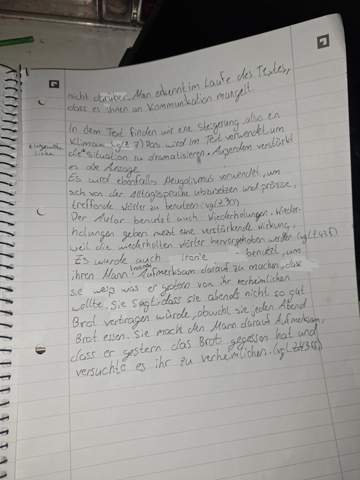 nicht darüber. Man erkennt im Laufe des Textes,
dass es ihnen an Kommunikation mangelt.
In dem Text finden wir eine Steigerung also en
Klimax (vgl. Z 7) Das wird im Text verwendet um
die Situation zu dramatisieren. Außerdem verstärkt
es die
Es wird ebenfalls Neugolismus verwendet, um
sich von der Alltagssprache abzusetzen und präzise,
treffende Wörter zu benutzen (vgl Z 30)
Der Autor benutzt auch Wiederholungen. Wieder-
holungen geben meist eine verstärkende Wirkung,
weil die wiederholten Wörter hervorgehoben werden (vgl Z 43f)
Es wurde auch Ironie benutzt, um
ihren Mann Aufmerksam darauf zu machen, dass
sie weiß was er gestern von ihr verheimlichen
wollte. Sie sagt dass sie abends nicht so gut
Brot vertragen würde, obwohl sie jeden Abend
Brot essen. Sie mach den Mann darauf Aufmerksam,
dass er gestern das Brot gegessen hat und
versuchte es ihr zu verheimlichen. (vgl